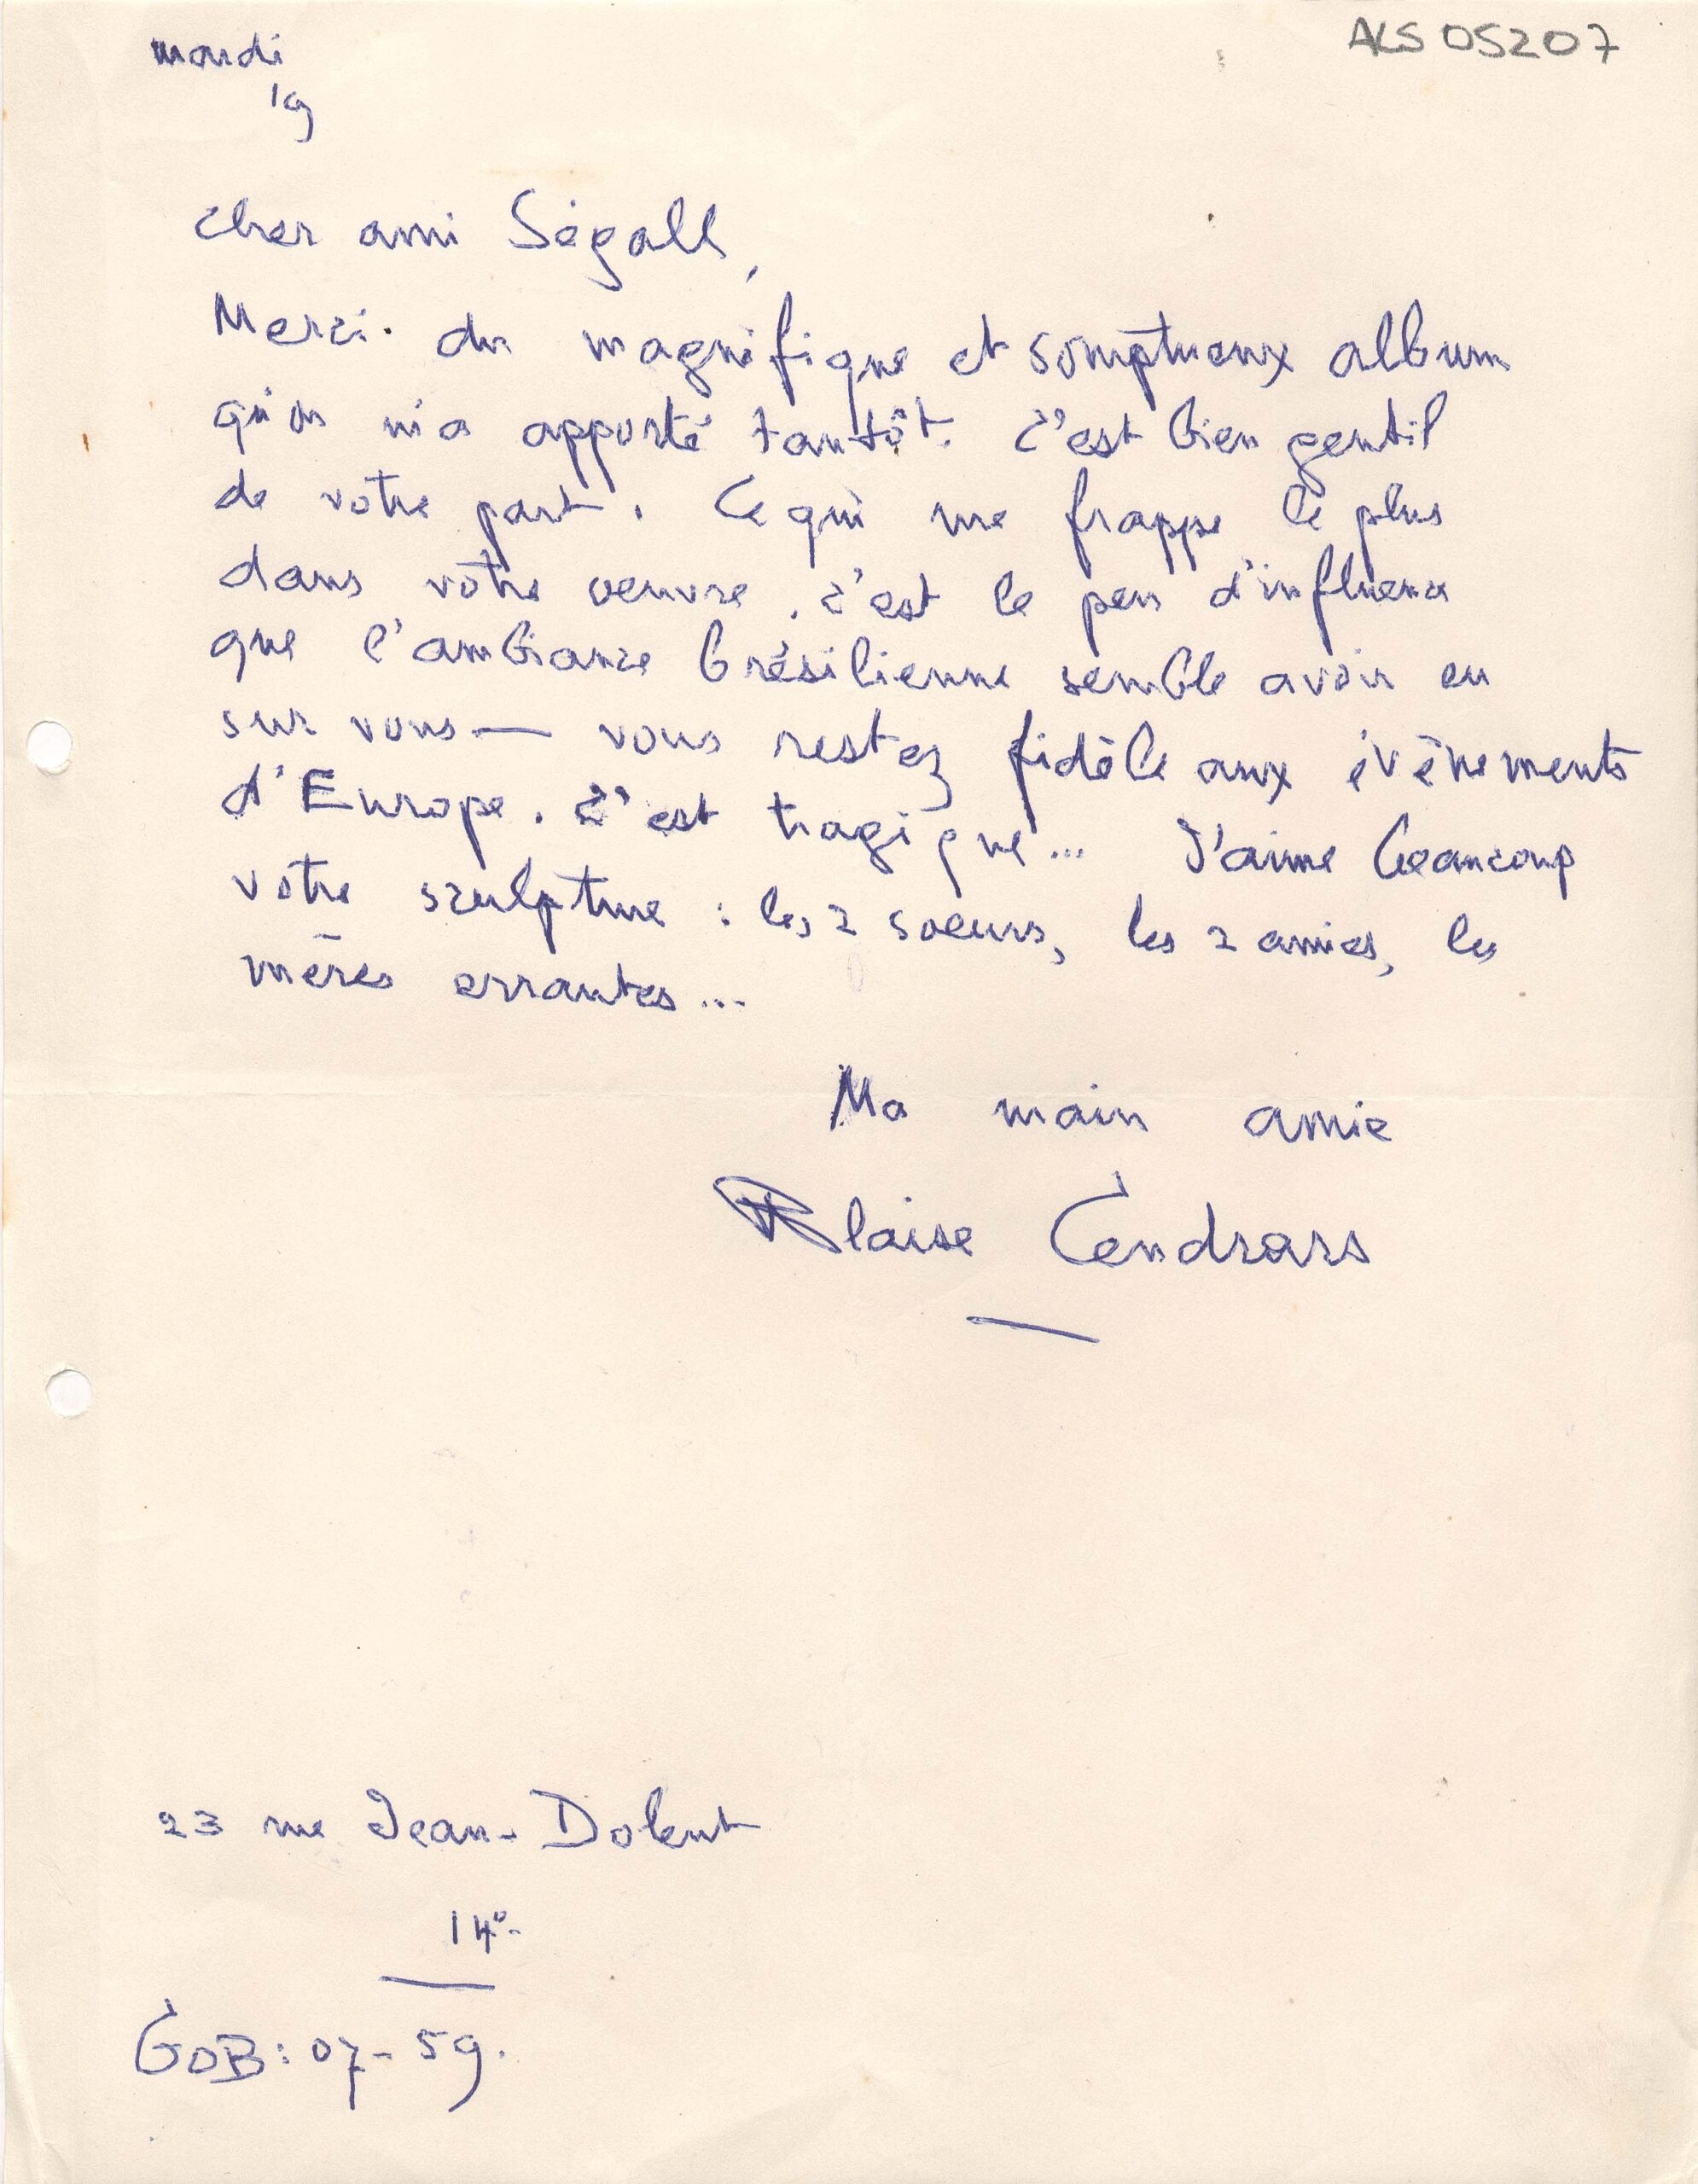 ALS 05207
mardi
19
Cher ami Ségall,
Merci du magnifique et somptueux album
qu'on m'a apporté tantôt. C'est bien gentil
de votre part. Ce qui me frappe le plus
dans votre oeuvre, c'est le peu d'influence
que l'ambiance brésilienne semble avoir eu
sur vous — vous restez fidèle aux évènements
d'Europe. C'est tragique... J'aime beaucoup
votre sculpture : les 2 soeurs, les 2 amies, les
mères errantes...
Ma main amie
Blaise Cendrars
23 rue Jean-Dolent
14e
GOB: 07-59.